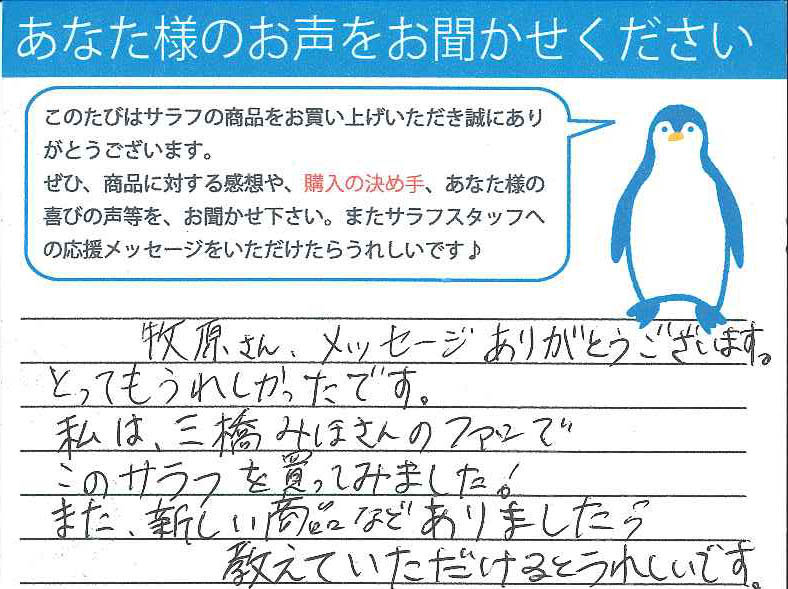 あなた様のお声をお聞かせください
このたびはサラフの商品をお買い上げいただき誠にあり
がとうございます。
ぜひ、商品に対する感想や、購入の決め手、あなた様の
喜びの声等を、お聞かせ下さい。またサラフスタッフへ
の応援メッセージをいただけたらうれしいです♪
牧原さん、メッセージありがとうございます。
とってもうれしかったです。
私は、三橋みほさんのファンで
このサラフを買ってみました!
また、新しい商品などありましたら
教えていただけるとうれしいです。